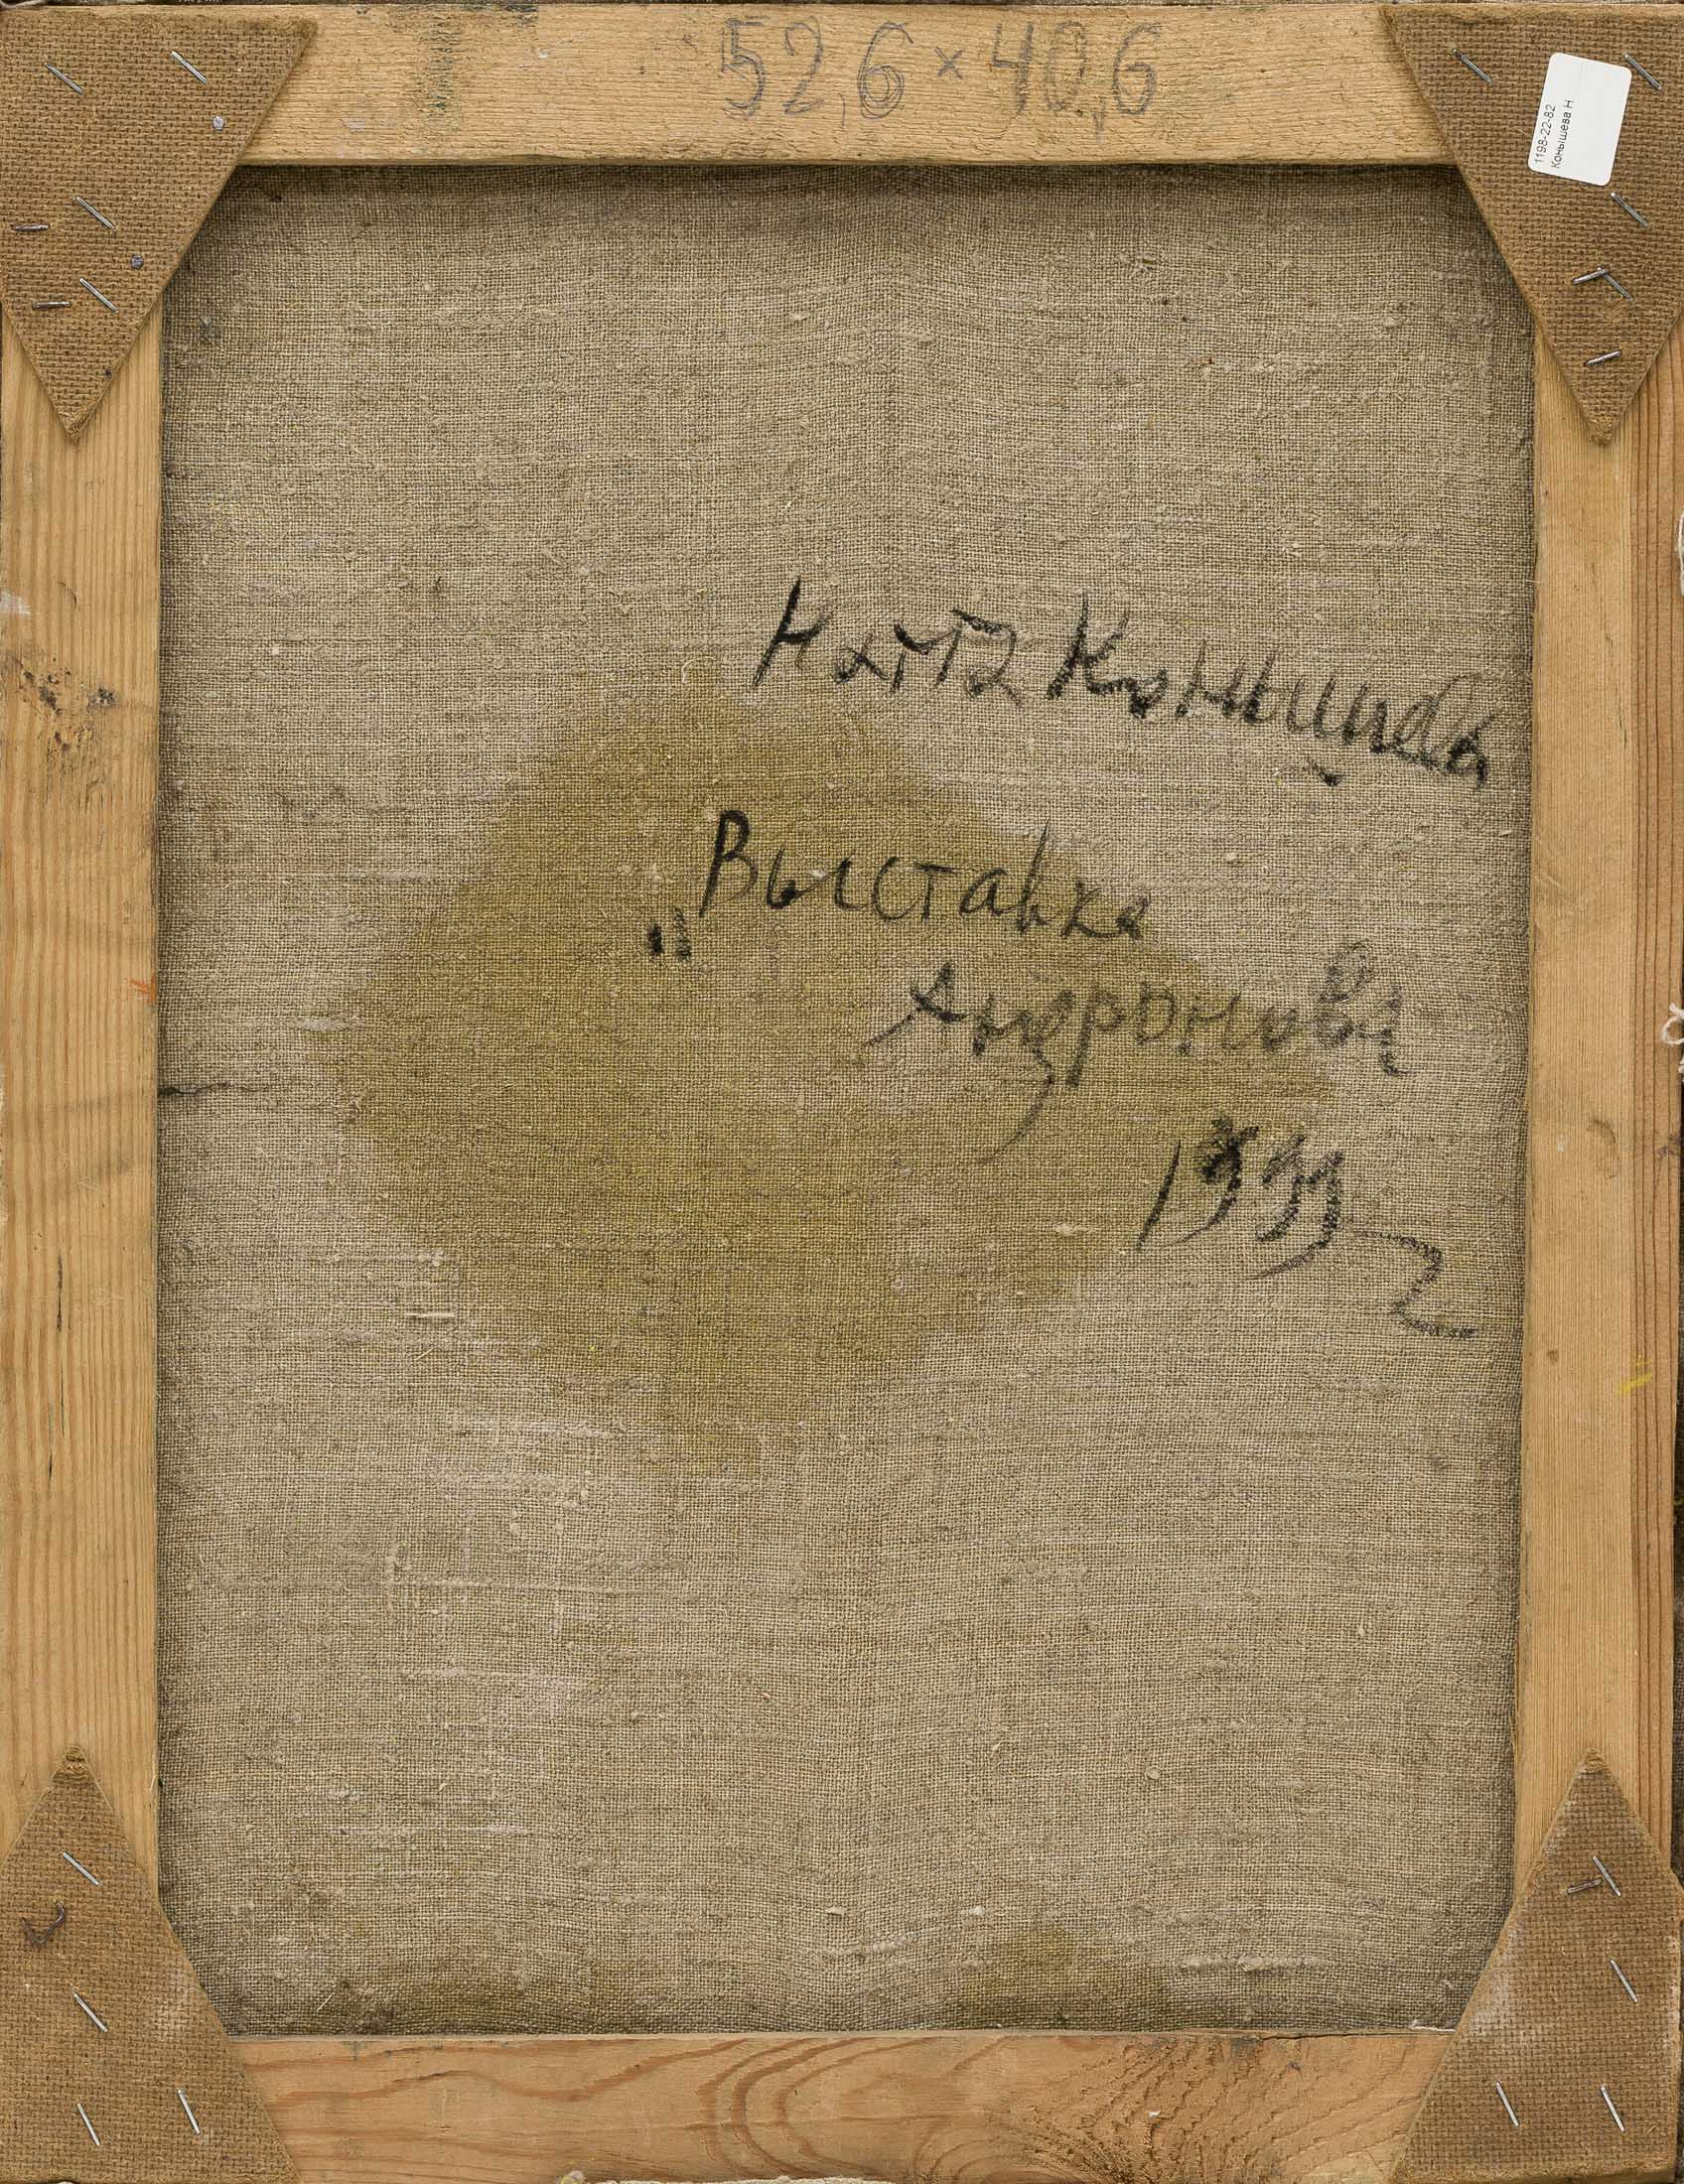 52,6 × 40,6
1198-22-82
Конышева Н
Ната Конышева
„Выставка
Андронова"